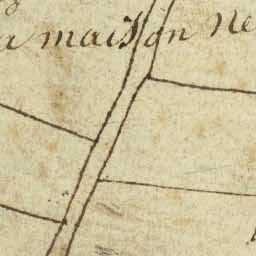 a maison Ne